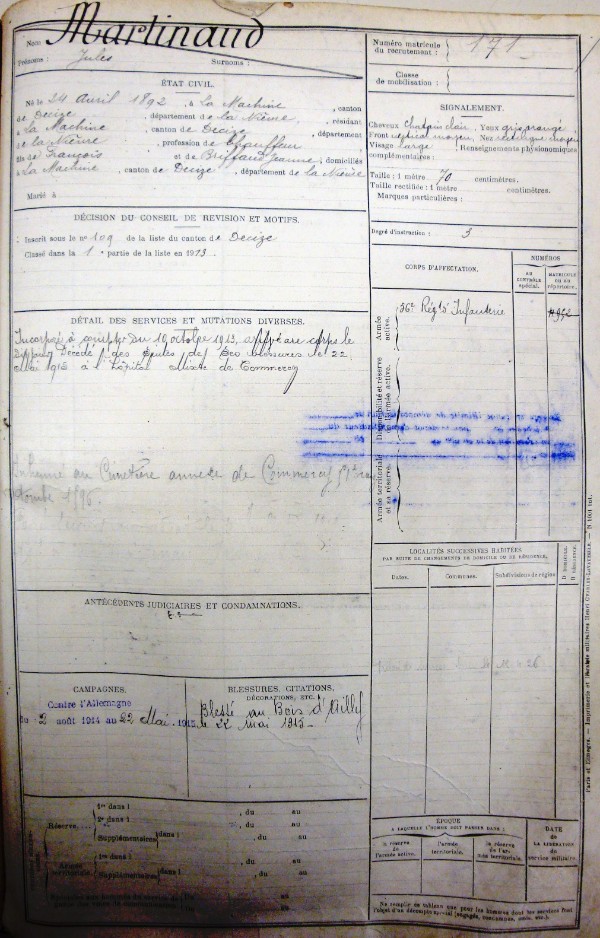 Nom : Martinaud
Prénoms : Jules Surnoms :
ÉTAT CIVIL.
Né le 24 Avril 1892, à La Machine, canton
de Decize, département de la Nièvre, résidant
à La Machine, canton de Decize, département
de la Nièvre, profession de Chauffeur
fils de François et de Jeanne, domiciliés
à La Machine, canton de Decize, département de la Nièvre
Marié à
DÉCISION DU CONSEIL DE REVISION ET MOTIFS.
Inscrit sous le n° 109 de la liste du canton de Decize
Classé dans la 1e partie de la liste en 1913.
DÉTAIL DES SERVICES ET MUTATIONS DIVERSES.
Incorporé à compter du 10 octobre 1913, arrivé au corps le
dit jour. Décédé des suites de ses blessures le 22
Mai 1915 à l'Hôpital de Commercy
Inhumé au Cimetière annexe de Commercy
tombe 1596.
ANTÉCÉDENTS JUDICIAIRES ET CONDAMNATIONS.
CAMPAGNES.
Contre l'Allemagne
du 2 août 1914 au 22 Mai 1915
BLESSURES, CITATIONS,
DÉCORATIONS, ETC.
Blessé au Bois d'Ailly
le 22 mai 1915
Réserve
1re dans l , du au
2e dans l , du au
Supplémentaires dans l , du au
Armée territoriale.
1re dans l , du au
Supplémentaires dans l , du au
Numéro matricule du recrutement : 171
Classe de mobilisation :
SIGNALEMENT.
Cheveux Chatain clair, Yeux gris orangé,
Front vertical moyen, Nez rectiligne moyen
Visage large, Renseignements physionomiques
complémentaires :
Taille : 1 mètre 70 centimètres.
Taille rectifiée : 1 mètre centimètres.
Marques particulières :
Degré d'instruction : 3
CORPS D'AFFECTATION.
NUMÉROS
AU CONTRÔLE spécial.
MATRICULE OU AU répertoire.
Armée active.
56e Régt d'Infanterie
Disponibilité et réserve de l'armée active.
Armée territoriale et sa réserve.
LOCALITÉS SUCCESSIVES HABITÉES
PAR SUITE DE CHANGEMENTS DE DOMICILE OU DE RÉSIDENCE.
Dates. Communes. Subdivisions de région
D domicile. R résidence.
ÉPOQUE
À LAQUELLE L'HOMME DOIT PASSER DANS :
la réserve de l'armée active.
l'armée territoriale.
la réserve de l'armée territoriale.
DATE DE LA LIBÉRATION du service militaire.
Ne remplir ce tableau que pour les hommes dont les services font
l'objet d'un décompte spécial (engagés, omis, etc.).
Paris et Limoges. — Imprimerie et librairie militaires Henri CHARLES-LAVAUZELLE.